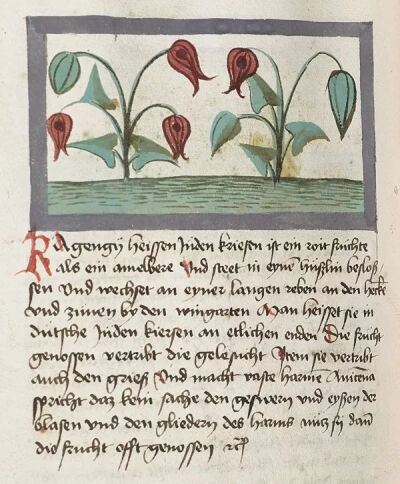 Ragengÿ heissen Juden kriesen ist ein rott fruchte
als ein amelbere Vnd steet in eyne hußlin besloß/
sen Vnd wechset an eyner langen reben an den heck
Vnd zunen by den wingarten Man heisset sie in
dutsche Juden kiersen an etlichen enden Die frucht
genossen vertribt die gelesucht Item sie vertribt
auch den grieß Vnd macht vaste harme Auicena
spricht daz kein sache den geswern vnd eyßen der
blasen vnd den gliedern des harns nutz sÿ dan
die frucht offt genossen